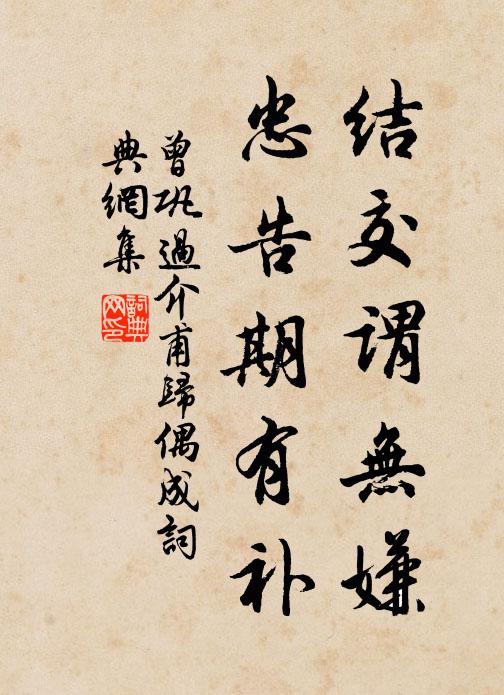 结交谓無嫌
忠告期有补
曾巩過介甫歸偶成詞
典網集
詞典
网印